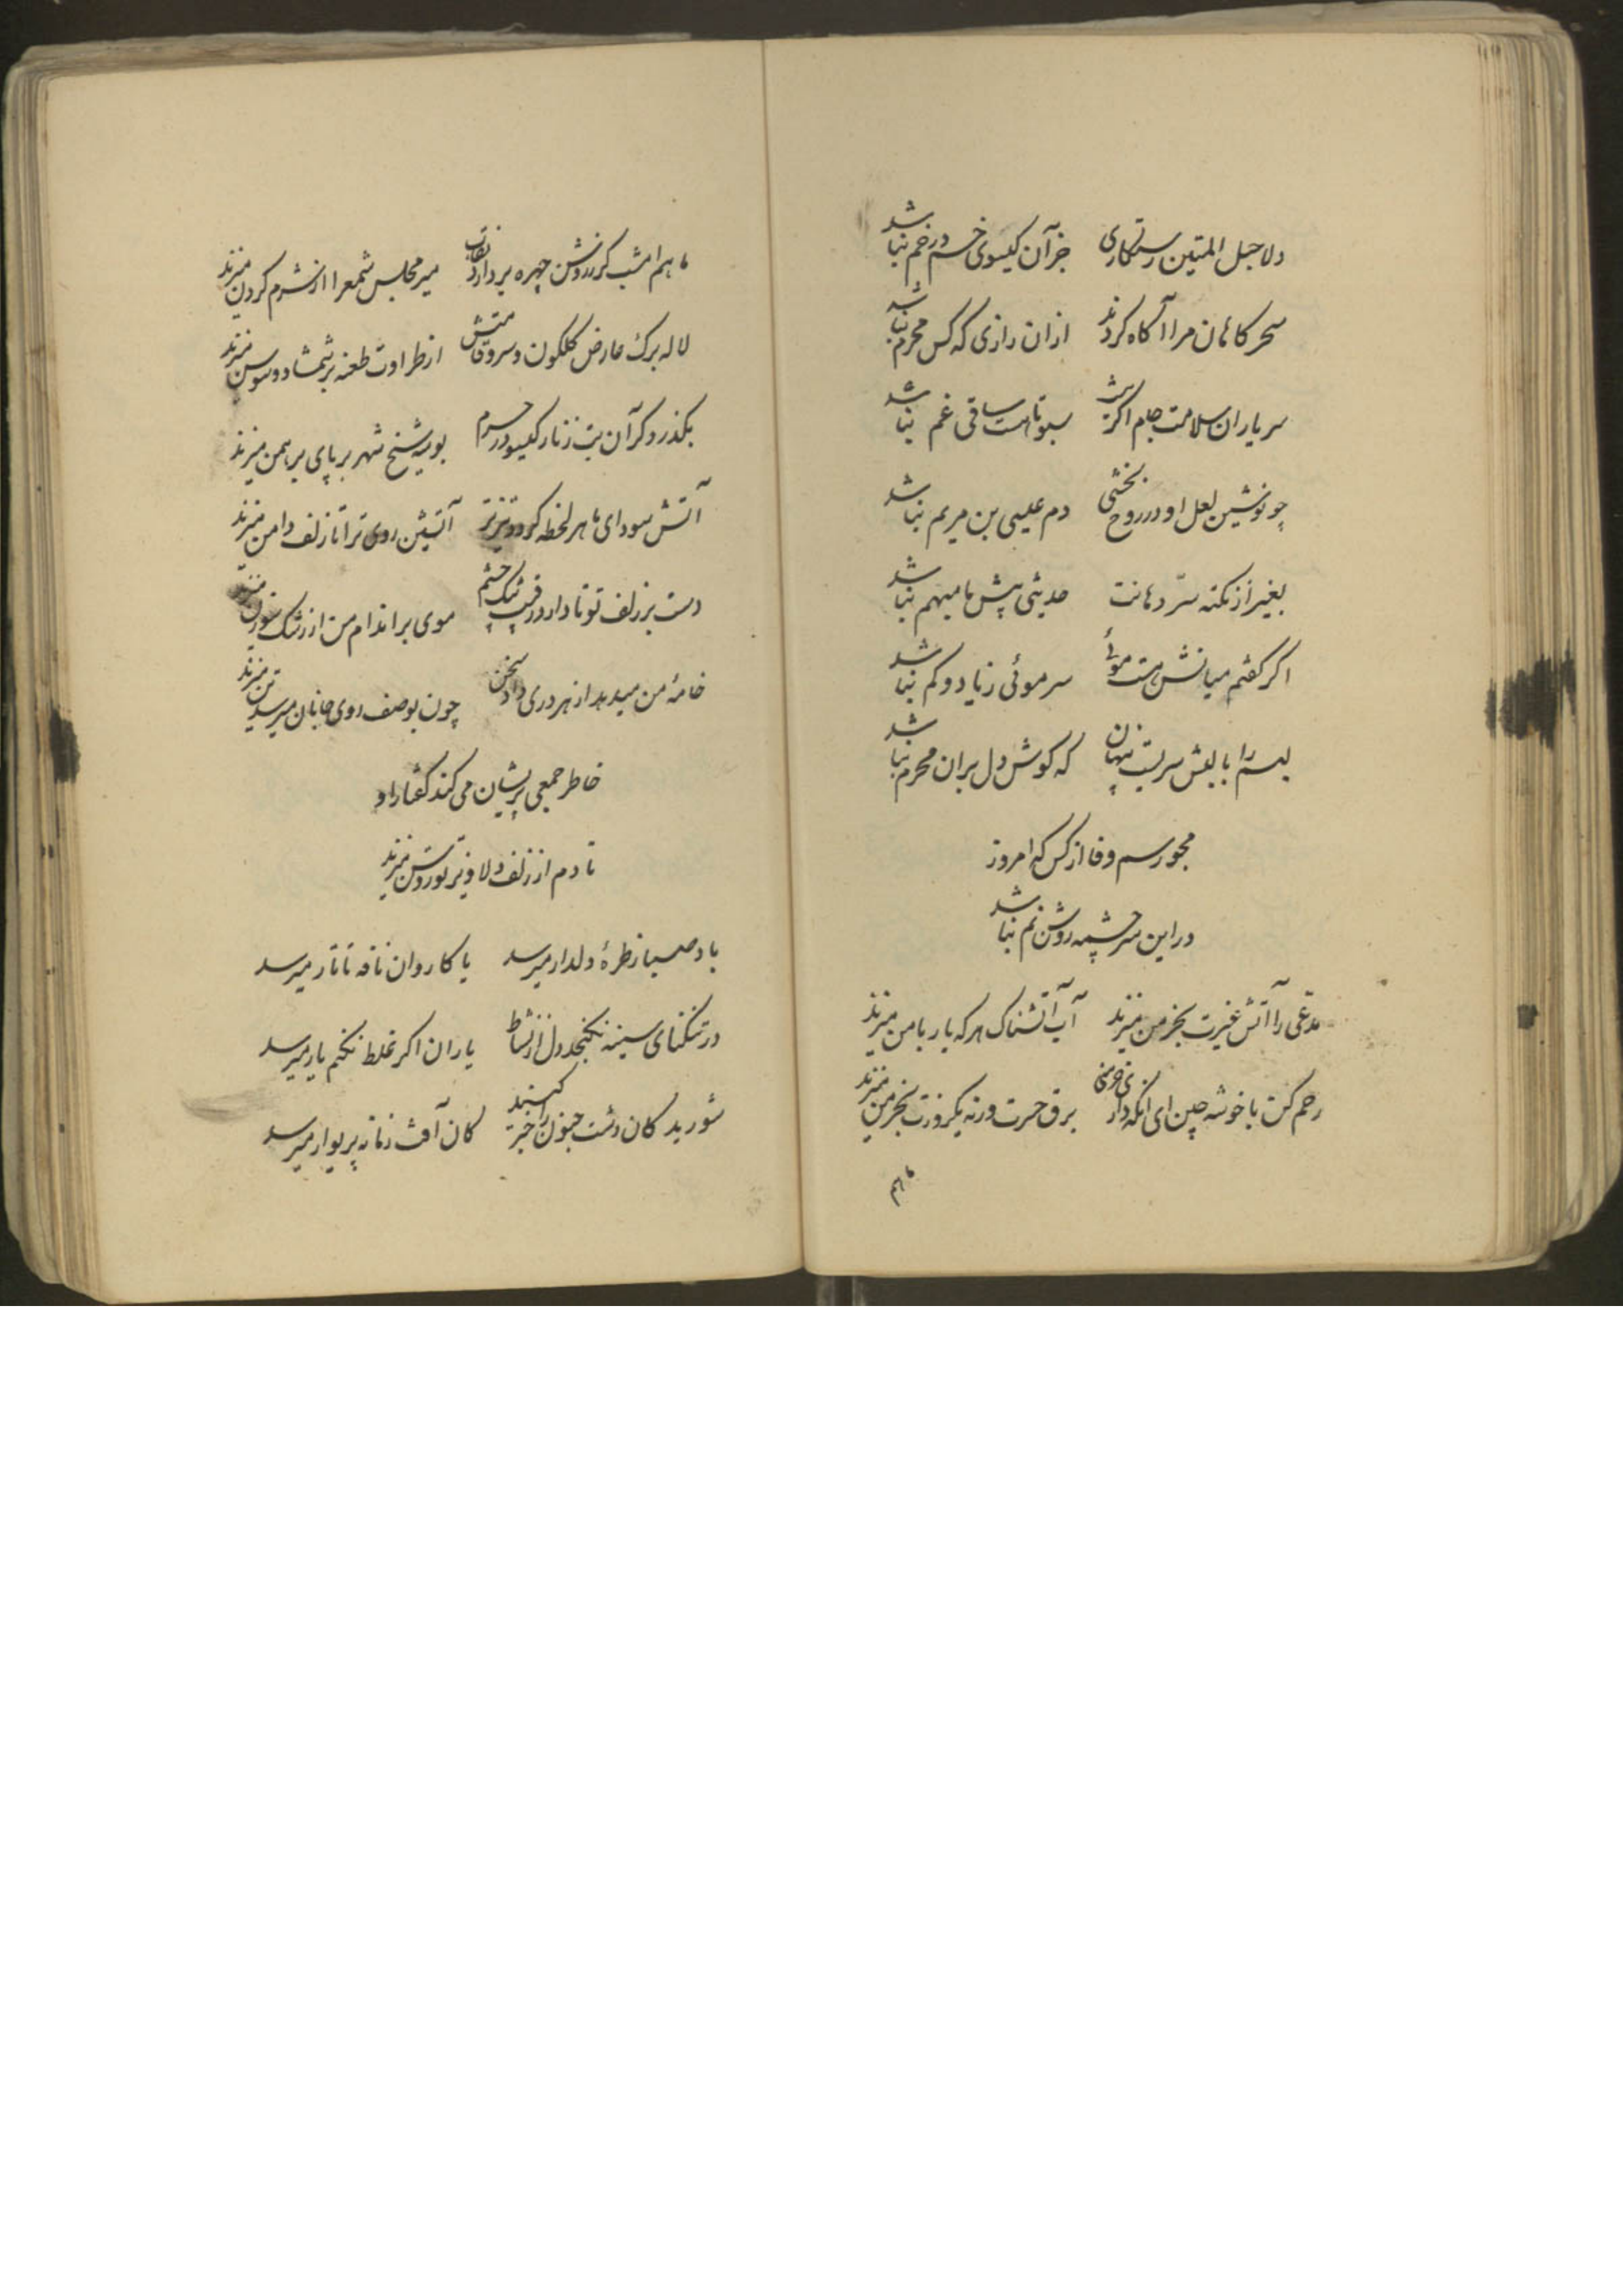 دلا حبل المتین رستکاری جز آن کیسوی خم در خم نباشد
سحرکاهان مرا آکاه کردند ازان رازی که کس محرم نباشد
سر یاران سلامت جام اکر شد سبو تا هست ساقی غم نباشد
چو نوشین لعل او در روح بخشی دم عیسی بن مریم نباشد
بغیر از نکته سرّ دهانت حدیثی پیش ما مبهم نباشد
اکر کفتم میانش هست موئی سر موئی زیاد و کم نباشد
بسرّ با لبش سریست پنهان که کوش دل بران محرم نباشد
مجو رسم وفا از کس که امروز
در این سرچشمه روشن نم نباشد
مدّعی را آتش غیرت بخرمن میزند آب آتشناک هر که یار با من میزند
رحم کن با خوشه چین ای آنکه داری خرمنی برق حسرت ورنه یکروزت بخرمن میزند
ماهم
ماهم امشب کر ز روشن چهره بردارد نقاب میر مجلس شمع را از شرم کردن میزند
لاله برک عارض کلکون و سرو قامتش از طراوت طعنه بر شمشاد و سوسن میزند
بکذرد کر آن بت زنار کیسو در حرم بوسه شیخ شهر بر پای برهمن میزند
آتش سودای ما هر لحظه کردد تیزتر آتشین روی ترا تا زلف دامن میزند
دست بر زلف تو تا دارد رقیب تنک چشم موی بر اندام من از رشک سوزن میزند
خامهٔ من میدهد از هر دری داد سخن چون بوصف روی جانان میرسد تن میزند
خاطر جمعی پریشان می کند کفتار او
تا دم از زلف دلاویز تو روشن میزند
باد صبا ز طرهٔ دلدار میرسد یا کاروان نافه تاتار میرسد
در تنکنای سینه نکنجد دل از نشاط یاران اکر غلط نکنم یار میرسد
شوریدکان دشت جنون را خبر کنید کان آفت زمانه پریوار میرسد